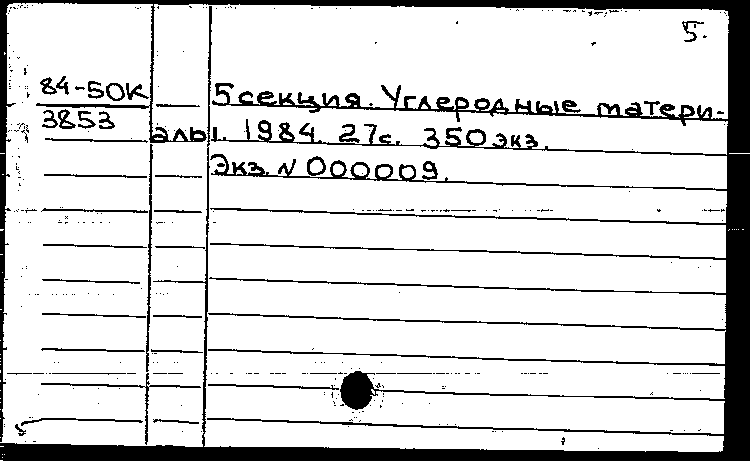 5.
84-50К
3853
5 секция. Углеродные матери-
алы. 1984. 27с. 350 экз.
Экз. N 000009.